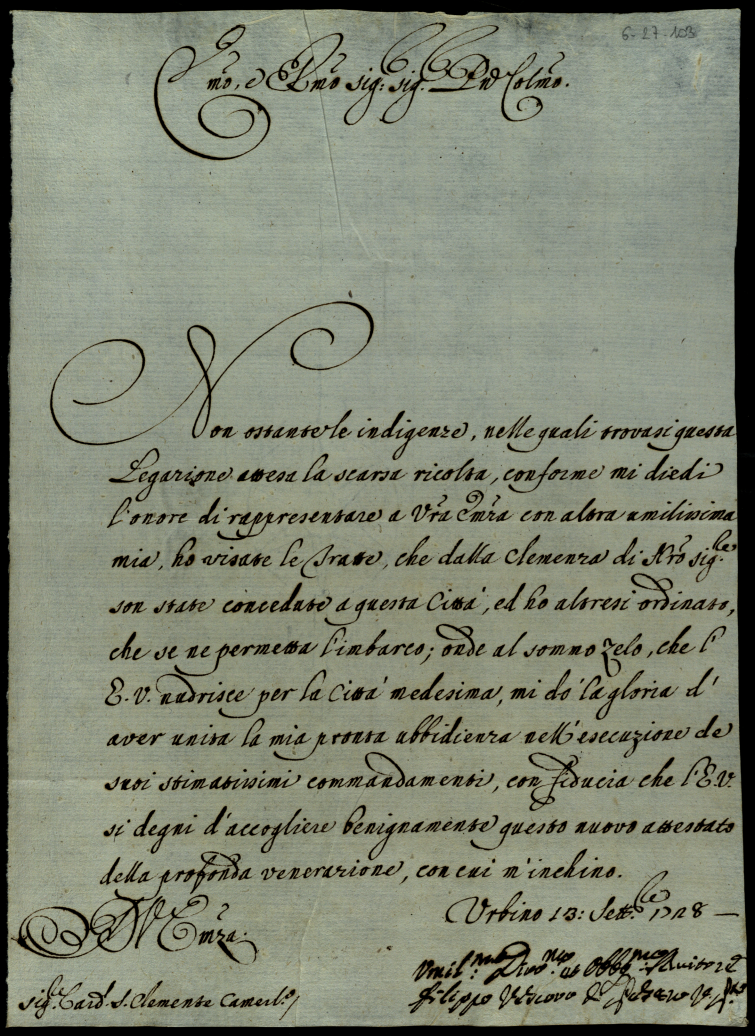 6-27-103
Emo, e Rmo sig: sig. Pne Colmo.
Non ostante le indigenze, nelle quali trovasi questa
Legazione attesa la scarsa ricolta, conforme mi diedi
l'onore di rappresentare a Vra Emza con altra umilissima
mia, ho vistate le Tratte, che dalla clemenza di Nro sig.re
son state concedute a questa Città, ed ho altresi ordinato,
che se ne permetta l'imbarco; onde al sommo zelo, che l'
E. V. nudrisce per la Città medesima, mi do' la gloria d'
aver unita la mia pronta ubbidienza nell'esecuzione de
suoi stimatissimi commandamenti, con fiducia che l'E.V.
si degni d'accogliere benignamente questo nuovo attestato
della profonda venerazione, con cui m'inchino.
Urbino 13: Sett.e 1728
D V Emza.
Umil.mo Divo.mo et Obbo.mo Servitore
sig.e Card. S. Clemente Camerl.o
Filippo Vescovo